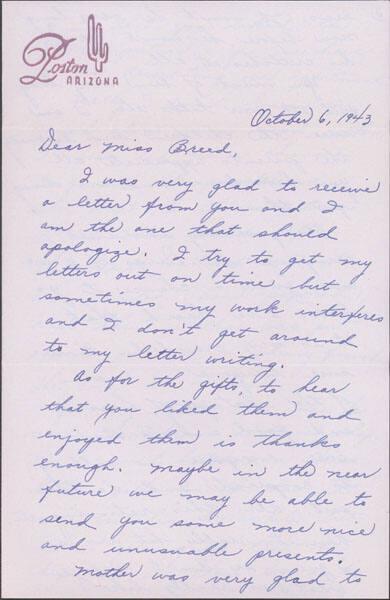 Poston
ARIZONA
October 6, 1943
Dear Miss Breed,
I was very glad to receive
a letter from you and I
am the one that should
apologize. I try to get my
letters out on time but
sometimes my work interferes
and I don't get around
to my letter writing.
As for the gifts, to hear
that you liked them and
enjoyed them is thanks
enough. Maybe in the near
future we may be able to
send you some more nice
and unusuable presents.
Mother was very glad to